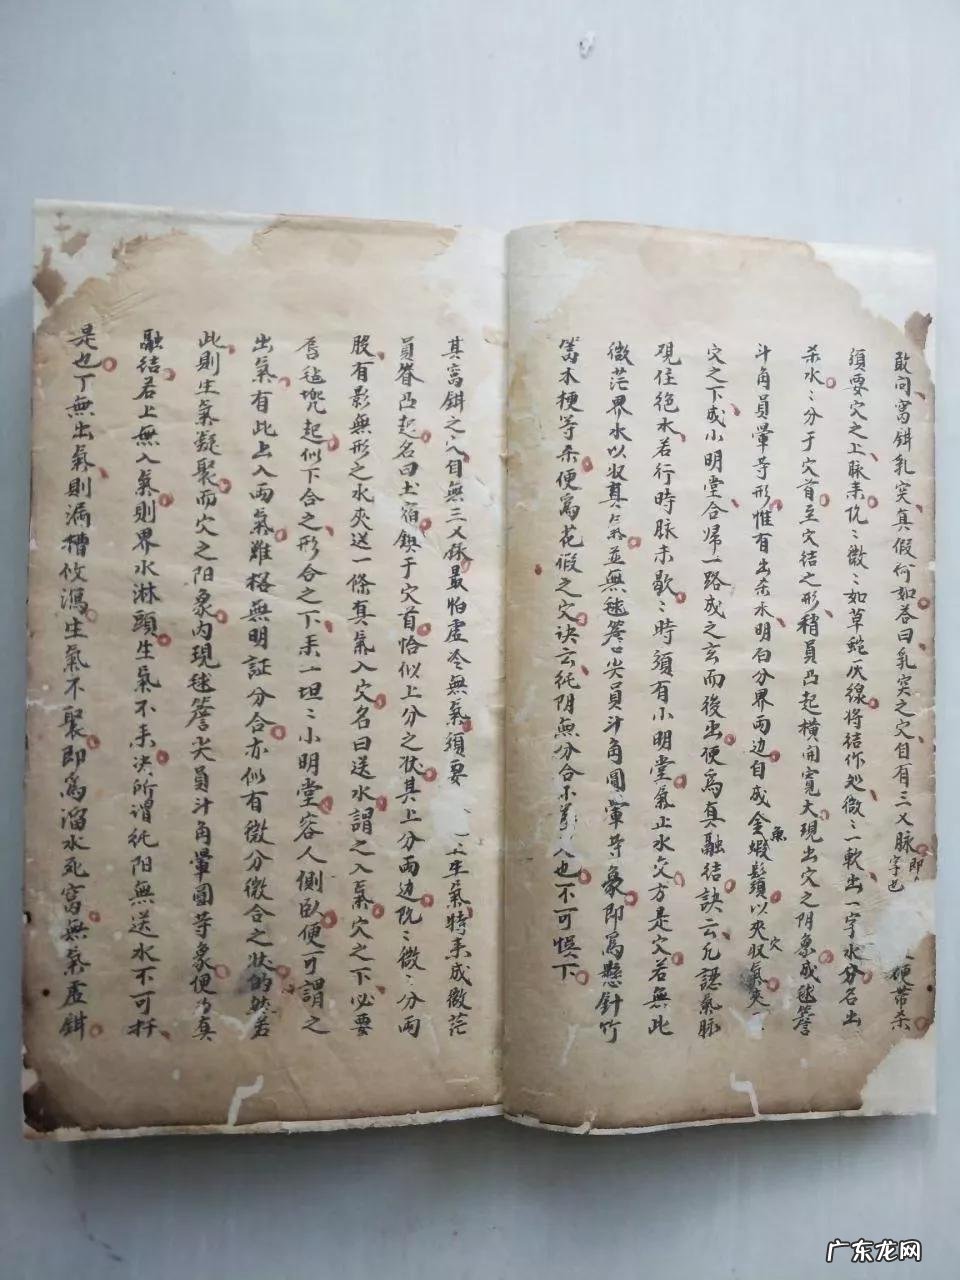 敢问窝鉗乳突真假何如荅曰乳突之穴自有三义脉
即
字也
硬帶杀
須要穴之上脉来仄〻微〻如草蛇灰線将結作处微〻一軟出一字水分各出
杀水〻分于穴首至穴結之形稍員凸起横開寬大現出穴之阴象成毬簷
斗角員暈等形惟有出杀水明白分界两边自成金蝦鬚以夾収氣夾
魚
穴
穴之下成小明堂合归一路成之玄而後出便爲真融結訣云凢認氣脉
現住绝水若行時脉未歇〻時須有小明堂氣止水交方是穴若無此
微茫界水以収其氣並無毬簷尖員斗角圓暈等象即爲懸針竹
篙木梗等杀便寫花假之穴訣云純阴無分合入也不可悮下
其窩鉗之穴自無三义脉最怕虛冷無氣須要生氣特来成微茫
員脊凸起名曰土宿鎮于穴首恰似上分之状其上分两边阬〻微〻分両
股有影無形之水夾送一條真氣入穴名曰送水謂之入氣穴之下必要
唇毡兜起似下合之形合之下来一坦〻小明堂容人側臥便可謂之
出氣有此上入両氣雖格無明証分合亦似有微分微合之状的然若
此則生氣凝聚而穴之阳象内現毬簷尖員斗角暈圓等象便为真
融結若上無入氣則界水淋頭生氣不来决所謂純阳無送水不可扦
是也丁無出氣則漏槽攸瀉生氣不聚即爲溜水死窩無氣虛鉗
广东龙网